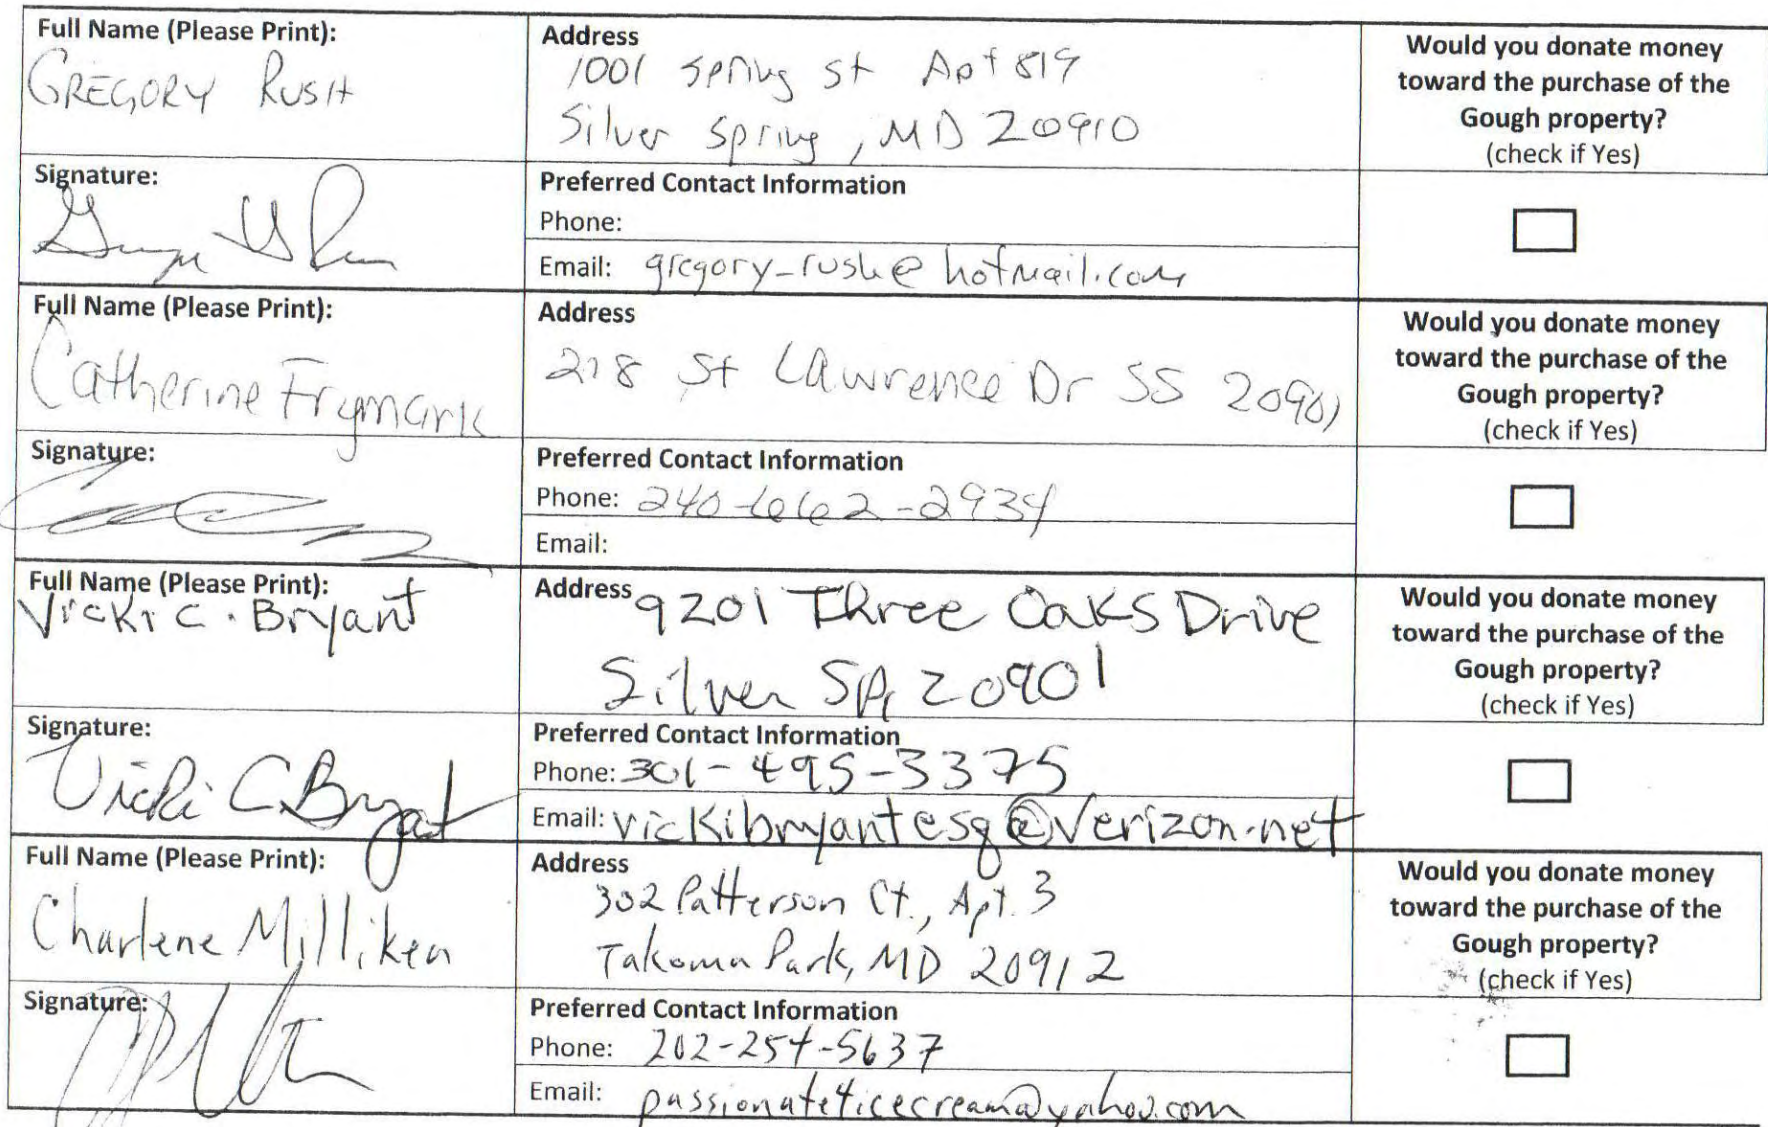 Full Name (Please Print):
GREGORY RUSH
Address
1001 Spring St Apt 819
Silver Spring, MD 20910
Would you donate money
toward the purchase of the
Gough property?
(check if Yes)
Signature:
Preferred Contact Information
Phone:
Email: gregory_rush@hotmail.com
Full Name (Please Print):
Catherine Frymark
Address
218 St Lawrence Dr SS 20901
Would you donate money
toward the purchase of the
Gough property?
(check if Yes)
Signature:
Preferred Contact Information
Phone: 240-662-2934
Email:
Full Name (Please Print):
Vicki C. Bryant
Address
9201 Three Oaks Drive
Silver Sp, 20901
Would you donate money
toward the purchase of the
Gough property?
(check if Yes)
Signature:
Vicki C Bryant
Preferred Contact Information
Phone: 301-495-3375
Email: vickibryantesq@verizon.net
Full Name (Please Print):
Charlene Milliken
Address
302 Patterson Ct., Apt. 3
Takoma Park, MD 20912
Would you donate money
toward the purchase of the
Gough property?
(check if Yes)
Signature:
Preferred Contact Information
Phone: 202-254-5637
Email: